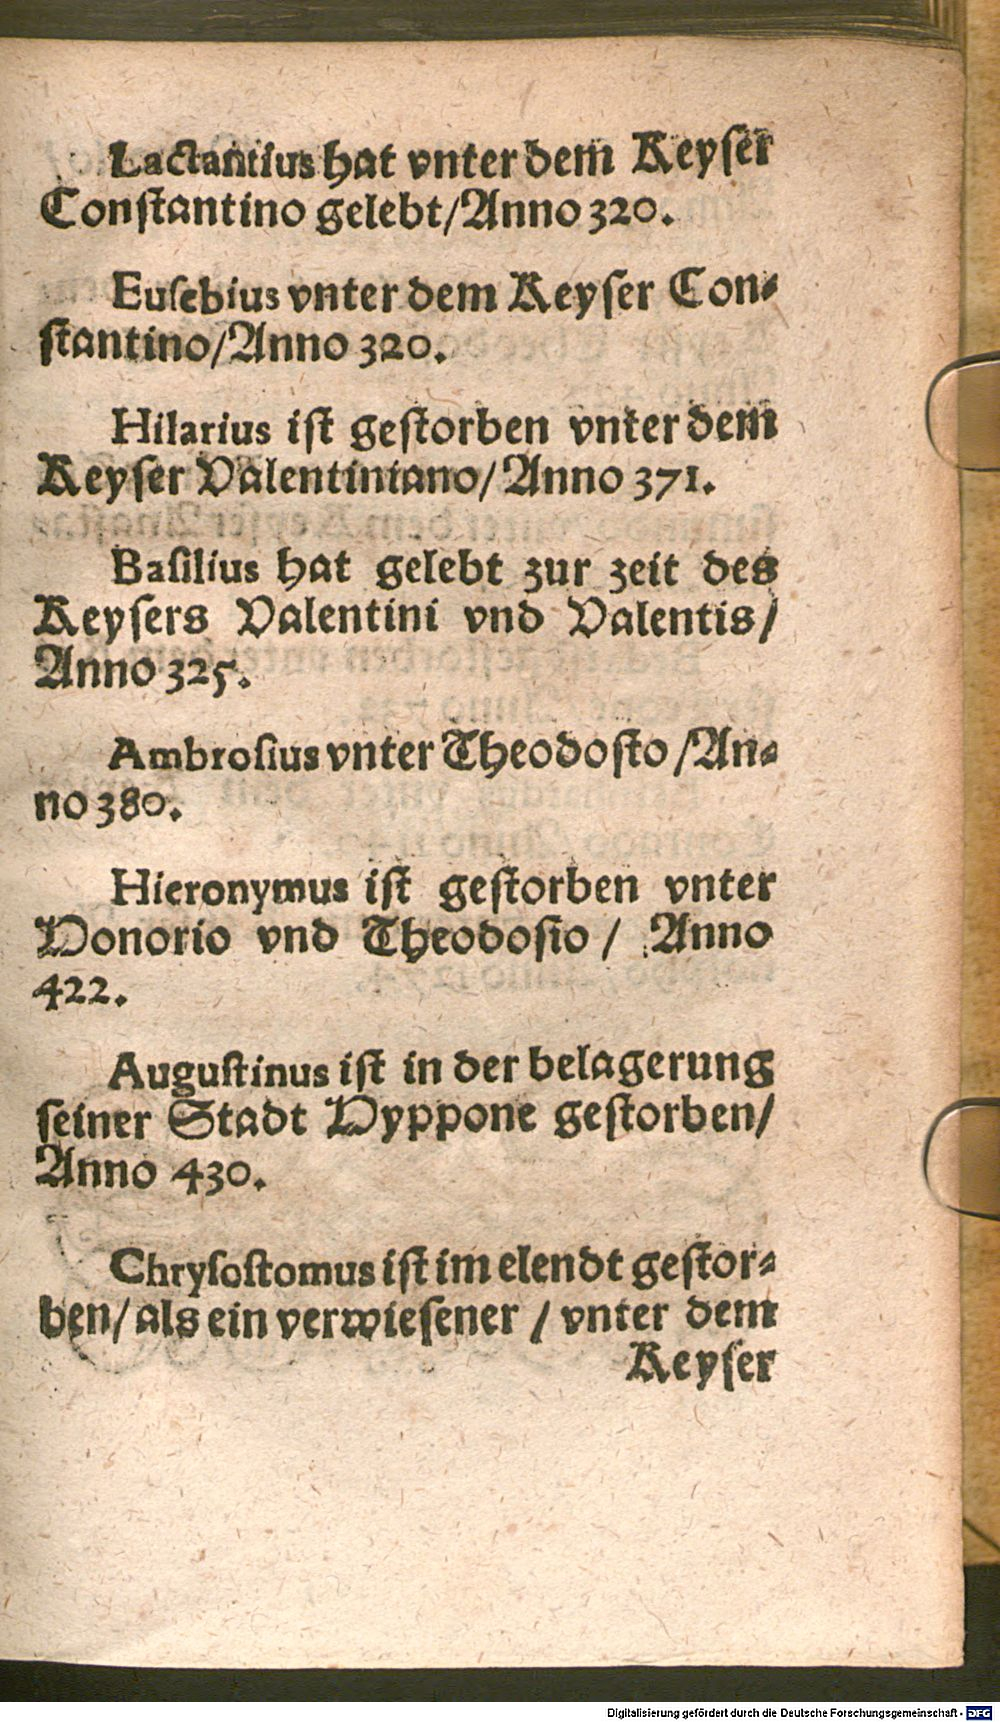 Lactantius hat vnter dem Keyser
Constantino gelebt/Anno 320.
Eusebius vnter dem Keyser Con-
stantino/Anno 320.
Hilarius ist gestorben vnter dem
Keyser Valentiniano/Anno 371.
Basilius hat gelebt zur zeit des
Keysers Valentini vnd Valentis/
Anno 325.
Ambrosius vnter Theodosio/An-
no 380.
Hieronymus ist gestorben vnter
Honorio vnd Theodosio/ Anno
422.
Augustinus ist in der belagerung
seiner Stadt Hyppone gestorben/
Anno 430.
Chrysostomus ist im elendt gestor-
ben/als ein verwiesener/vnter dem
Keyser
Digitalisierung gefördert durch die Deutsche Forschungsgemeinschaft - DFG